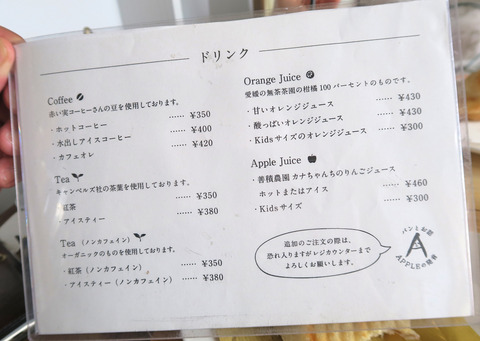 ドリンク
Coffee
赤い実コーヒーさんの豆を使用しております。
・ホットコーヒー …… ¥350
・水出しアイスコーヒー …… ¥400
・カフェオレ …… ¥420
Tea
キャンベルズ社の茶葉を使用しております。
・紅茶 …… ¥350
・アイスティー …… ¥380
Tea (ノンカフェイン)
オーガニックのものを使用しております。
・紅茶(ノンカフェイン) …… ¥350
・アイスティー(ノンカフェイン) …… ¥380
Orange Juice
愛媛の無茶茶園の柑橘 100 パーセントのものです。
・甘いオレンジジュース …… ¥430
・酸っぱいオレンジジュース …… ¥430
・Kidsサイズのオレンジジュース …… ¥300
Apple Juice
・善積農園 カナちゃんちのりんごジュース
ホットまたはアイス …… ¥460
・Kidsサイズ …… ¥300
追加のご注文の際は、
恐れ入りますがレジカウンターまで
よろしくお願いします。
パンとお菓子
A
APPLEの発音